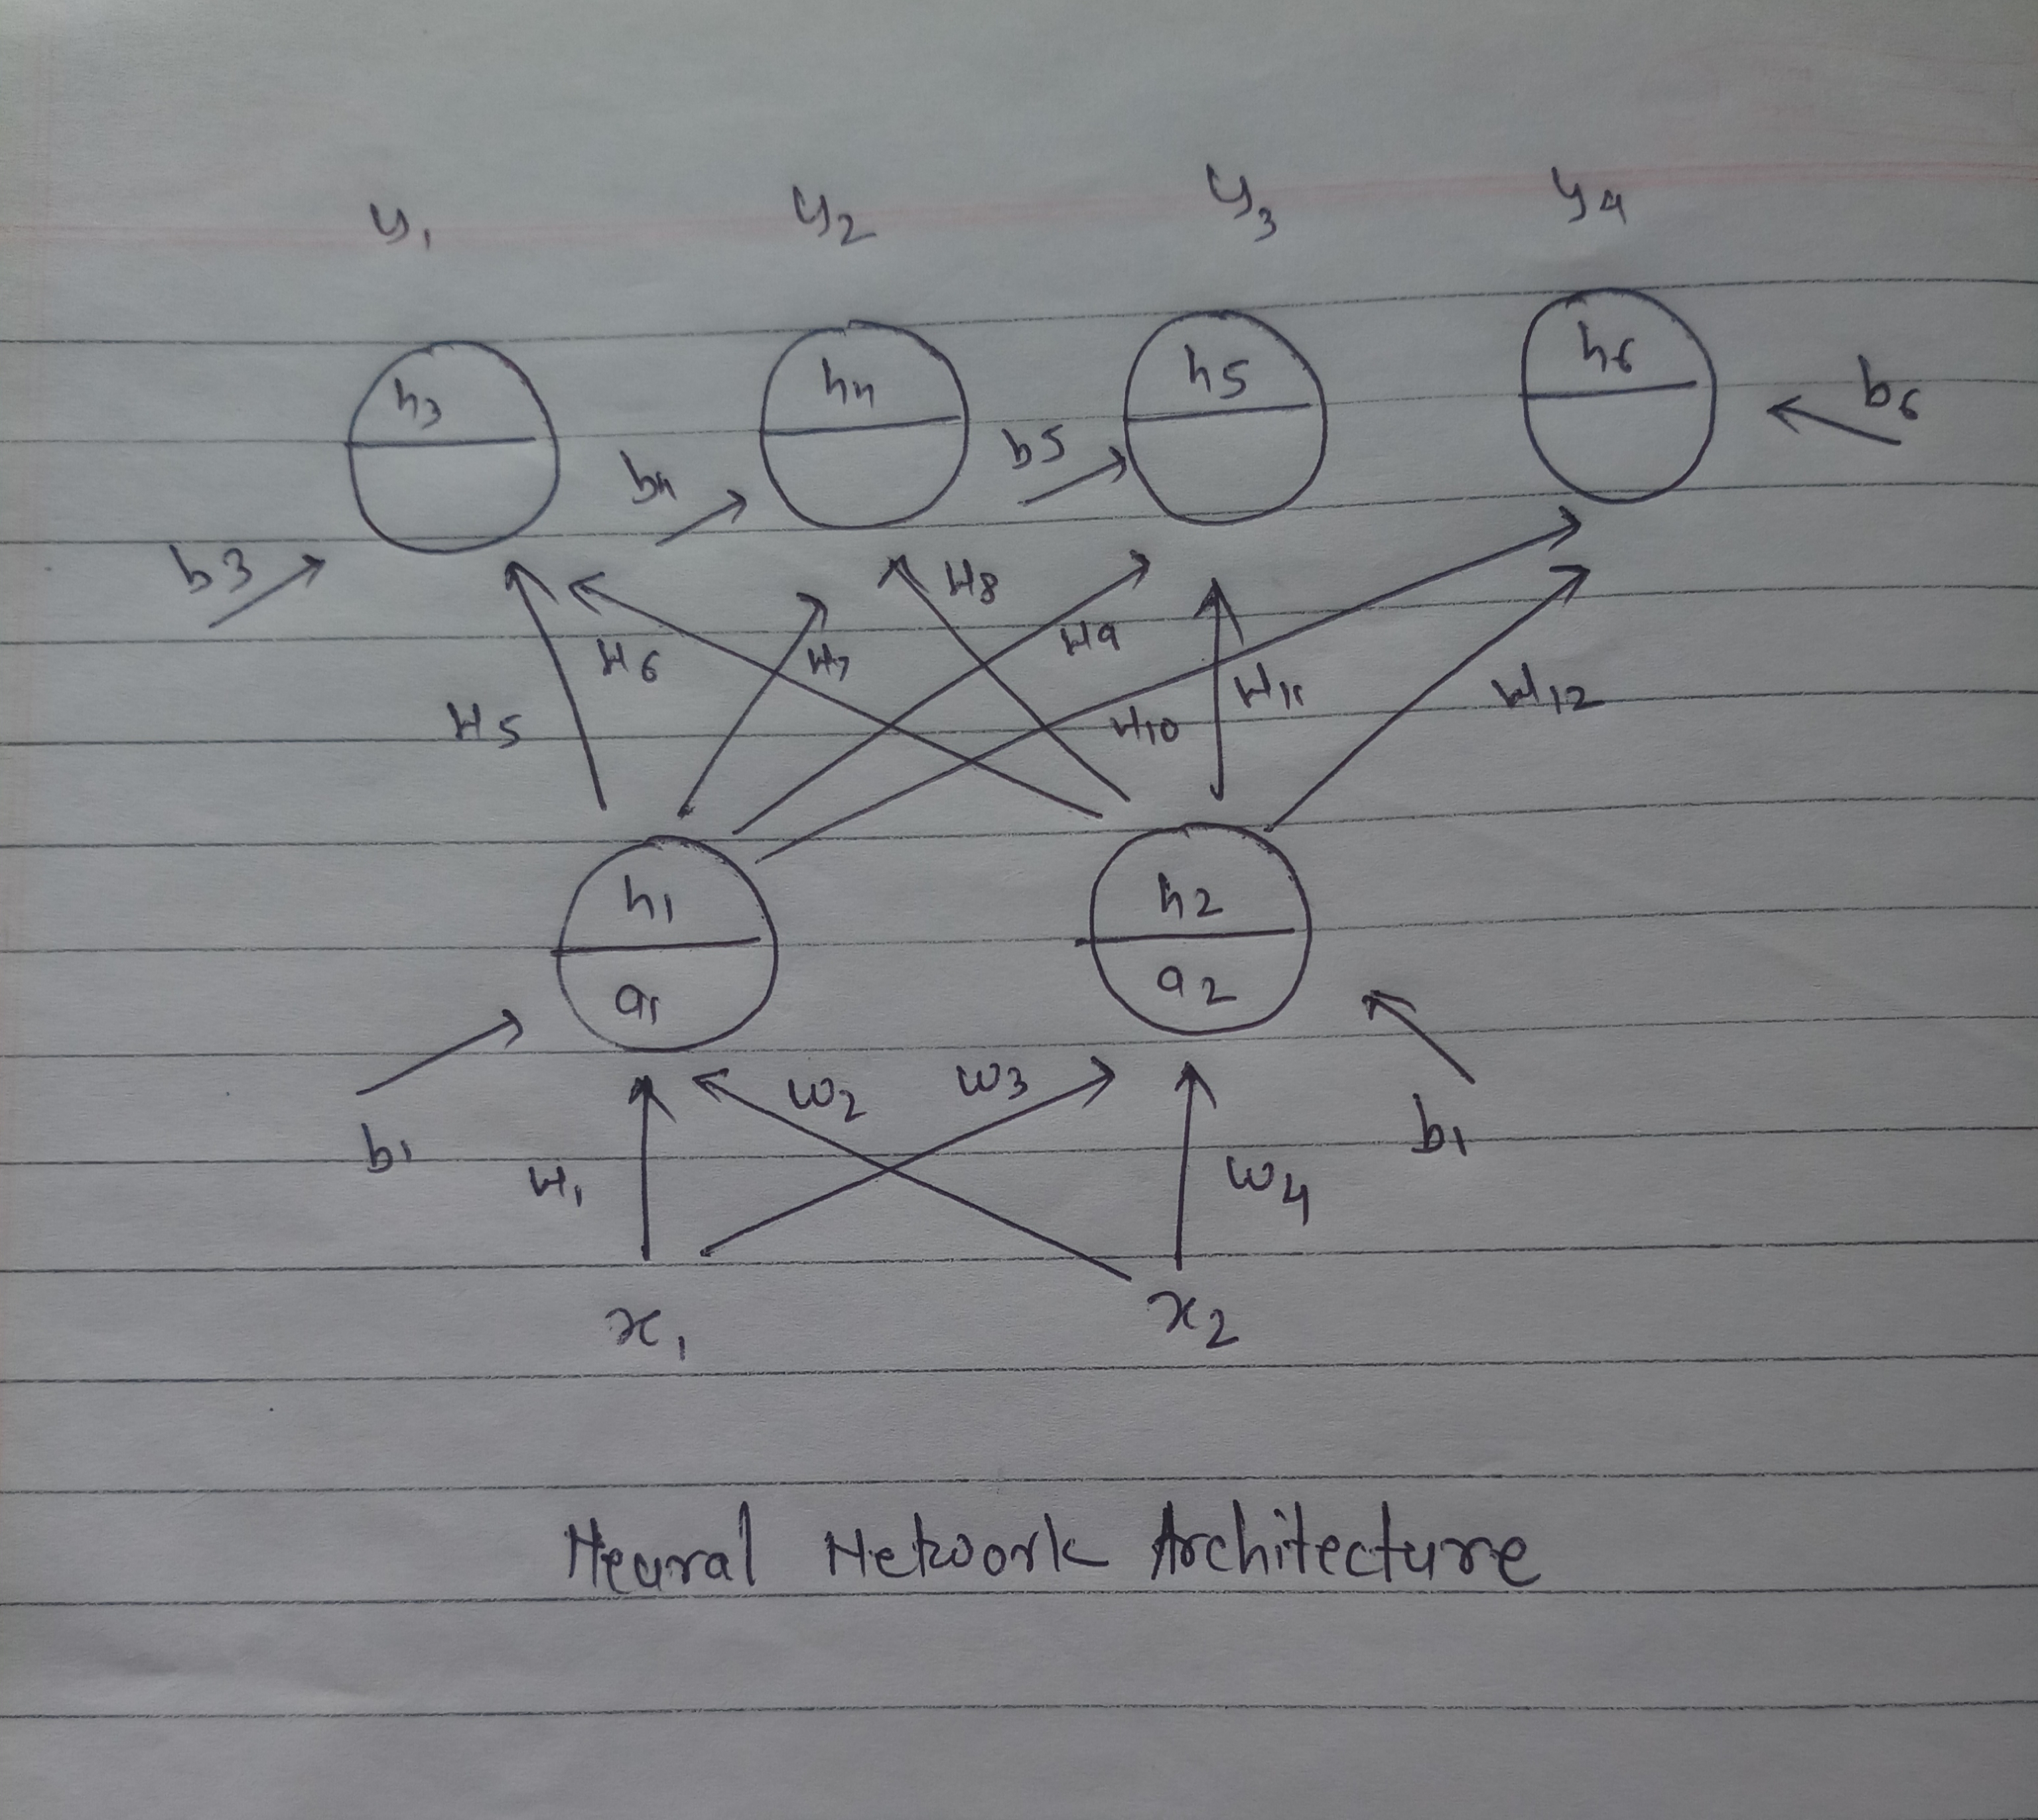 y1 y2 y3 y4
h3 h4 h5 h6
b3 b4 b5 b6
W5 W6 W7 W8 W9 W10 W11 W12
h1 h2
a1 a2
b1 b1
W1 W2 W3 W4
x1 x2
Neural Network Architecture